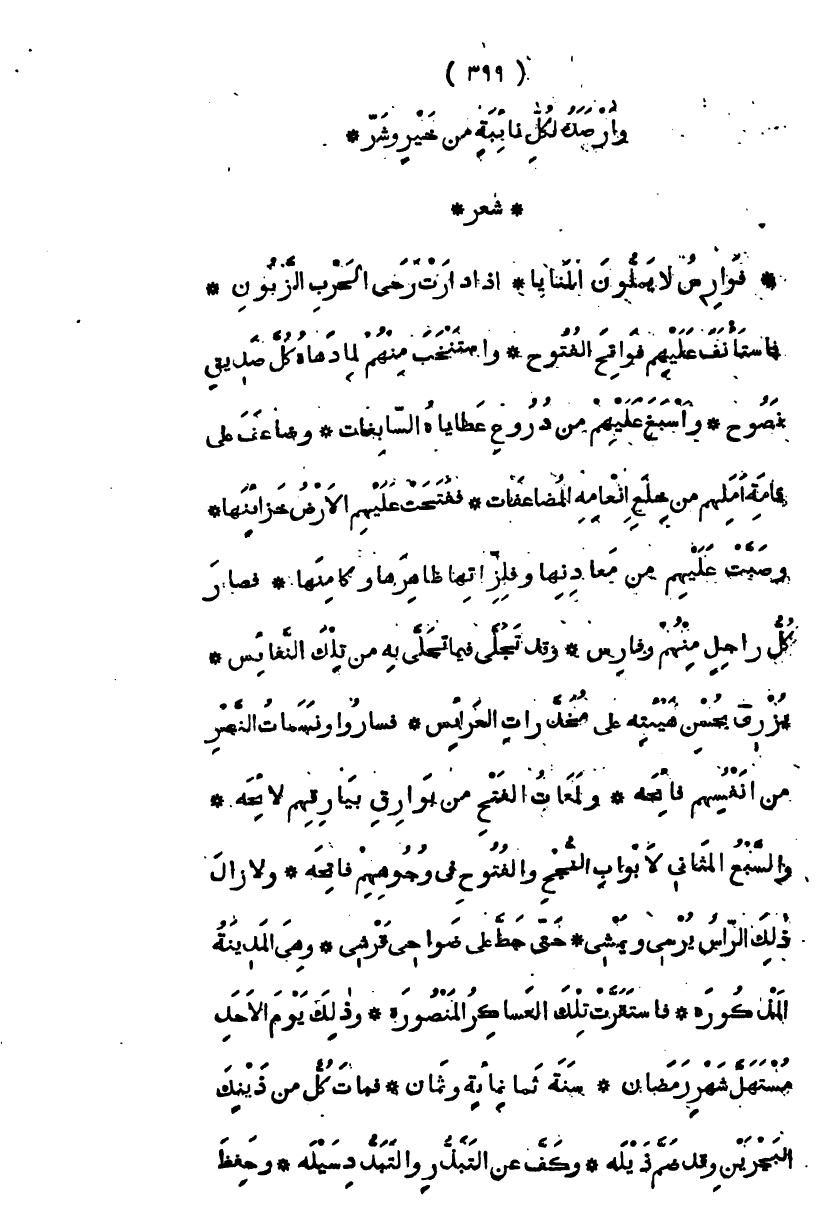 ( ٣٩٩ )
وَأَرْصَدَهُ لِكُلِّ نَائِبَةٍ مِن خَيْرٍ وشَرّ *
* شعر *
* فَوَارِسُ لا يَمَلُّونَ المَنَايَا * اذا دارَتْ رَحَى الحَرْبِ الزَّبُونِ *
فاستَأْنَفَ عَلَيْهِم فَوَاتِحَ الفُتُوح * واسْتَنْخَبَ مِنْهُمْ لِمادَهاهُ كُلَّ صَدِيقٍ
نَصُوح * وأَسْبَغَ عَلَيْهِمْ من دُرُوعِ عَطَاياهُ السّابِغات * وضاعَفَ على
قامَةِ أَمَلِهم من خِلَعِ إِنْعامِهِ المُضاعَفات * ففَتَحَتْ عَلَيْهِم الاَرْضُ خَزائِنَها *
وصَبَّتْ عَلَيْهِم مِن مَعادِنِها وفِلِزّاتِها ظاهِرَها وكامِنَها * فصارَ
كُلُّ راجِلٍ مِنْهُمْ وفارِس * وقد تَجَلَّى فيما تَحَلَّى بِه من تِلْكَ النَّفائِس *
يُزْرِى بحُسْنِ هَيْئَتِه على مُخَدَّراتِ العَرائِس * فسارُوا ونَسَماتُ النَّصْرِ
من أَنْفُسِهم فائِحَه * ولَمَعاتُ الفَتْحِ من بَوارِقِ بَيارِقِهِم لائِحَه *
والسَّبْعُ المَثاني لأَبْوابِ النُّجْحِ والفُتُوحِ فى وُجُوهِهِمْ فاتِحَه * ولازالَ
ذٰلِكَ الرّاسُ يُرْمِى ويَمْشِى * حَتّى حَطَّ على ضَواحِى قَرْشِى * وهِىَ المَدِينَةُ
المَذْكُورَه * فاستَقَرَّتْ تِلْكَ العَساكِرُ المَنْصُورَه * وذٰلِكَ يَوْمَ الاَحَدِ
مُسْتَهَلَّ شَهْرِ رَمَضان * سَنَةَ ثَمانِمائَةٍ وثَمان * فباتَ كُلٌّ من ذَيْنِكَ
البَحْرَيْنِ وقد ضَمَّ ذَيْلَه * وكَفَّ عن التَّبَذُّرِ والتَّبَدُّدِ سَيْلَه * وحَفِظَ